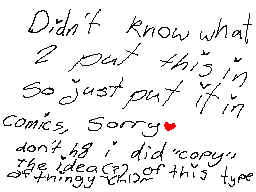 Didn't know what
2 put this in
so just put it in
comics, sorry♥
don't h8 i did "copy"
the idea(s) of this type
of thingy